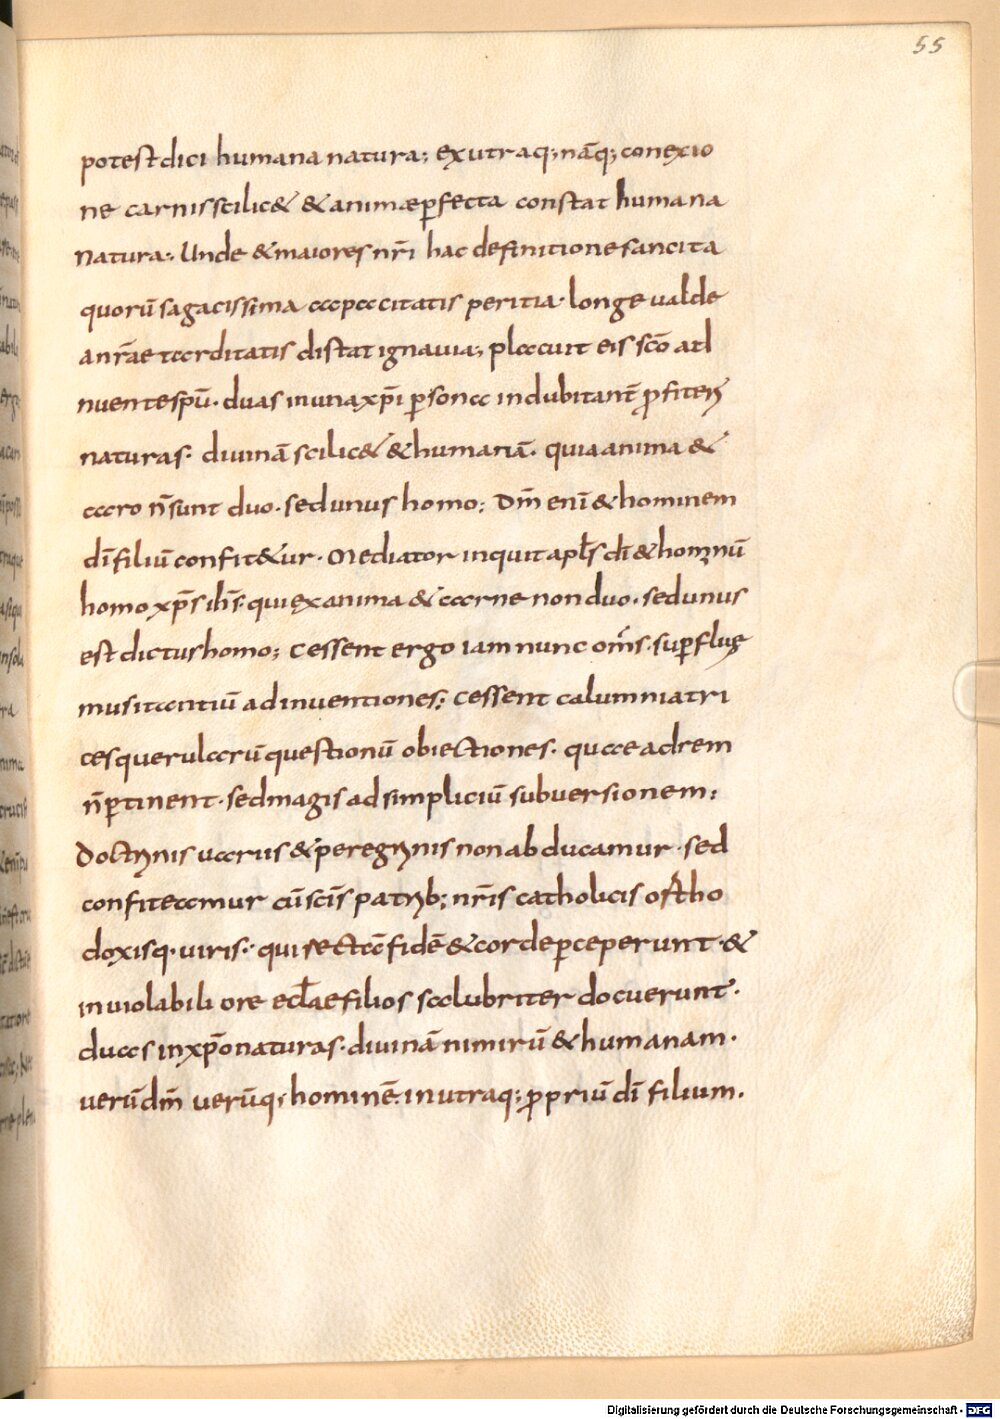 55
potest dici humana natura; ex utraq; nāq; conexio
ne carnis scilic& & animæ ꝑfecta constat humana
natura. Unde & maiores nr̄i hac definitione sancita
quorū sagacissima capacitatis peritia. longe ualde
a nr̄ae tarditatis distat ignauia; placuit eis sc̄o ad
nuente sp̄u. duas in una xp̄i ꝑsona indubitant̄ ꝓfiteri
naturas. diuinā scilic& & humanā. quia anima &
caro n̄ sunt duo. sed unus homo; Dm̄ enī & hominem
dī filiū confit&ur. Mediator inquit apl̄s dī & hominū
homo xp̄s ih̄s. qui ex anima & carne non duo. sed unus
est dictus homo; Cessent ergo iam nunc om̄s. suꝑfluę
musitantiū adinuentiones; Cessent calumniatri
ces querularū questionū obiectiones. quae ad rem
n̄ ꝑtinent. sed magis ad simpliciū subuersionem;
Doctrinis uariis & peregrinis non abducamur. sed
confiteamur cū sc̄is patrib; nr̄is catholicis ortho
doxisq. uiris. qui rectā fidē & corde ꝑceperunt. &
inuiolabili ore eccl̄ae filios salubriter docuerunt.
duas in xp̄o naturas. diuinā nimirū & humanam.
uerū dm̄ uerūq; hominē. in utraq; ꝓpriū dī filium.
Digitalisierung gefördert durch die Deutsche Forschungsgemeinschaft - DFG